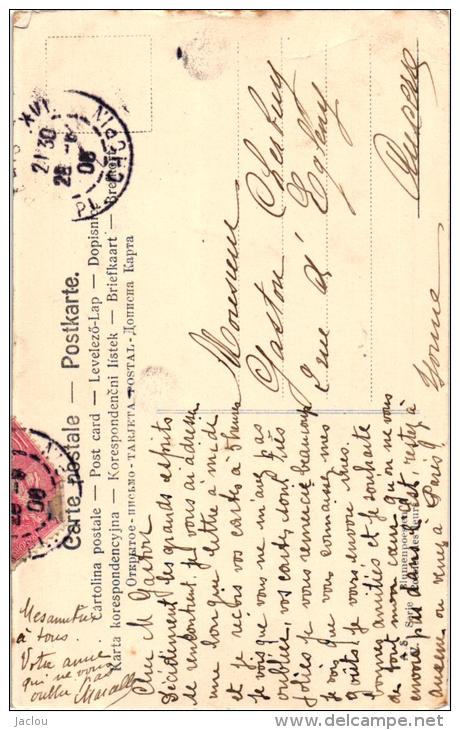 Carte postale — Postkarte.
Cartolina postale — Post card — Levelező-Lap — Dopisnice
Karta korespondencyjna — Korespondenční lístek — Briefkaart — Brefkort
Открытое письмо — TARJETA POSTAL — Дописна Карта
PARIS XVI
21 30
28 - 6
06
Monsieur
Gaston
rue d' Egleny
Auxerre
Yonne
Cher M. Gaston
Décidément les grands esprits
se rencontrent, je vous ai adressé
une longue lettre à midi
et je reçois vos cartes à
je vois que vous ne m'avez pas
oubliée, vos cartes sont très
jolies je vous remercie beaucoup
vous connaissez mes
goûts je vous envoie mes
bonnes amitiés et je souhaite
de tout mon cœur qu'on ne vous
envoie pas
ou venez à Paris
Mes amitiés
à tous.
Votre amie
qui ne vous
oublie pas
Marcelle
Serie
Jaclou
http://www.delcampe.net